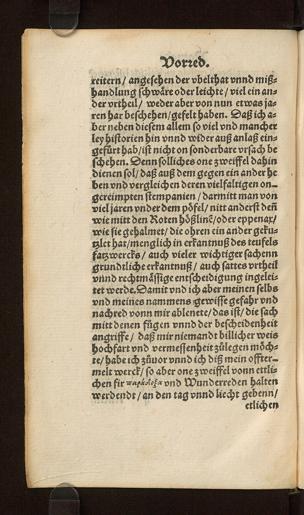 Vorred.
reitern/ angesehen der vbelthat vnnd miß-
handlung schwäre oder leichte/ viel ein an-
der vrtheil/ weder aber von nun etwas ja-
ren har beschehen/ gefelt haben. Daß ich a-
ber neben diesem allem so viel vnd mancher
ley historien hin vnnd wider auß anlaß ein-
gefürt hab/ ist nicht on sonderbare vrsach be
schehen. Denn solliches one zweiffel dahin
dienen sol/ daß auß dem gegen ein ander he
ben vnd vergleichen deren vielfaltigen on-
gereimpten stempanien/ darmitt man von
viel jaren vnder dem pöfel/ nitt anderst deñ
wie mitt den Roten hößlinẽ/ oder eppenax/
wie sie gehalmet/ die ohren ein ander geku-
tzlet har/ menglich in erkantnuß des teufels
katzwercks/ auch vieler wichtiger sachenn
grundtliche erkantnuß/ auch sattes vrtheil
vnnd rechtmässige entscheidung ingelei-
tet werde. Damit vnd ich aber meinen selbs
vnd meines nammens gewisse gefahr vnd
nachred vonn mir ablenete/ das ist/ die sach
mitt denen fügen vnnd der bescheidenheit
angriffe/ daß mir niemandt billicher weis
hochfart vnd vermessenheit zůlegen möch-
te/ habe ich zůuor vnnd ich diß mein offter-
melt werck/ so aber one zweiffel vonn ettli-
chen für παράδοξα vnd Wunderreden halten
werdendt/ an den tag vnnd liecht gebenn/
etlichen